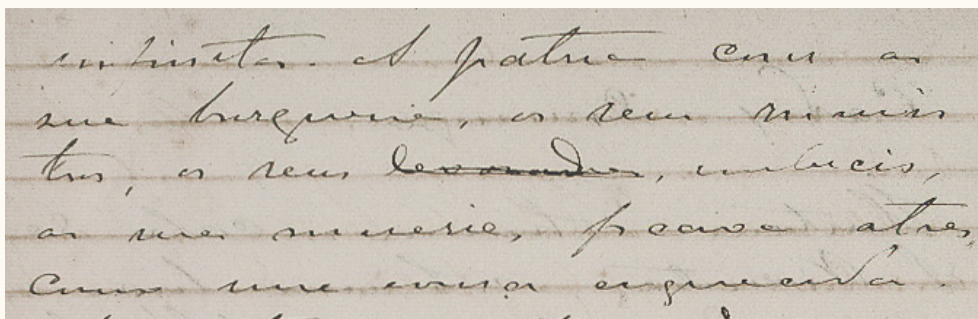 instinctos. A patria com as
sua burguezia, os seus minis
tros, os seus, imbecis,
as suas miserias, ficava atraz,
como uma cousa esquecida.